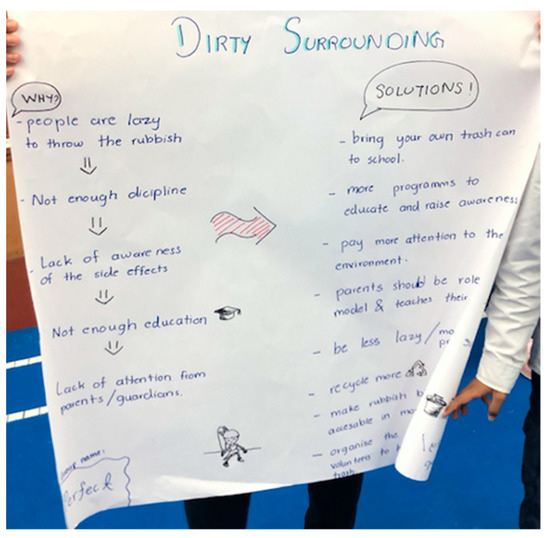 DIRTY SURROUNDING
WHY?
- people are lazy
to throw the rubbish
- Not enough dicipline
- Lack of awareness
of the side effects
Not enough education
Lack of attention from
parents/guardians.
SOLUTIONS!
- bring your own trash can
to school.
- more programms to
educate and raise awareness
- pay more attention to the
environment.
- parents should be role
model & teaches their
- be less lazy/mo
- recycle more
- make rubbish b
assesable in mo
- organise the
volunteers to
trash
name:
erfect